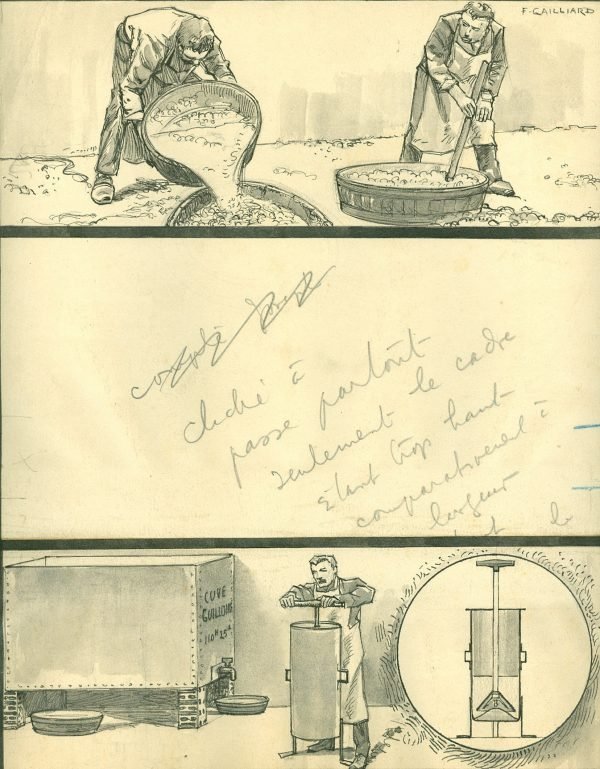 F-GAILLIARD
cliché à
passe partout
seulement le cadre
étant trop haut
comparativement à
largeur
CUVE
110H 25